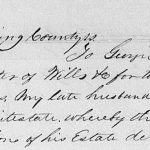 ing County ss
To Georg
ter of Wills &c for th
s, My late husband
ntestate, whereby th
ons of his Estate de